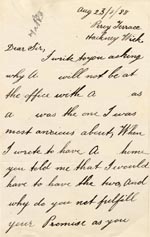 Aug 23/88
Percy Terrace
Hackney Wick
Dear Sir,
I write to you asking
why A will not be at
the office with A as
A was the one I was
most anxious about, When
I wrote to have A home
you told me that I would
have to have the two, And
why do you not fulfill
your Promise as you